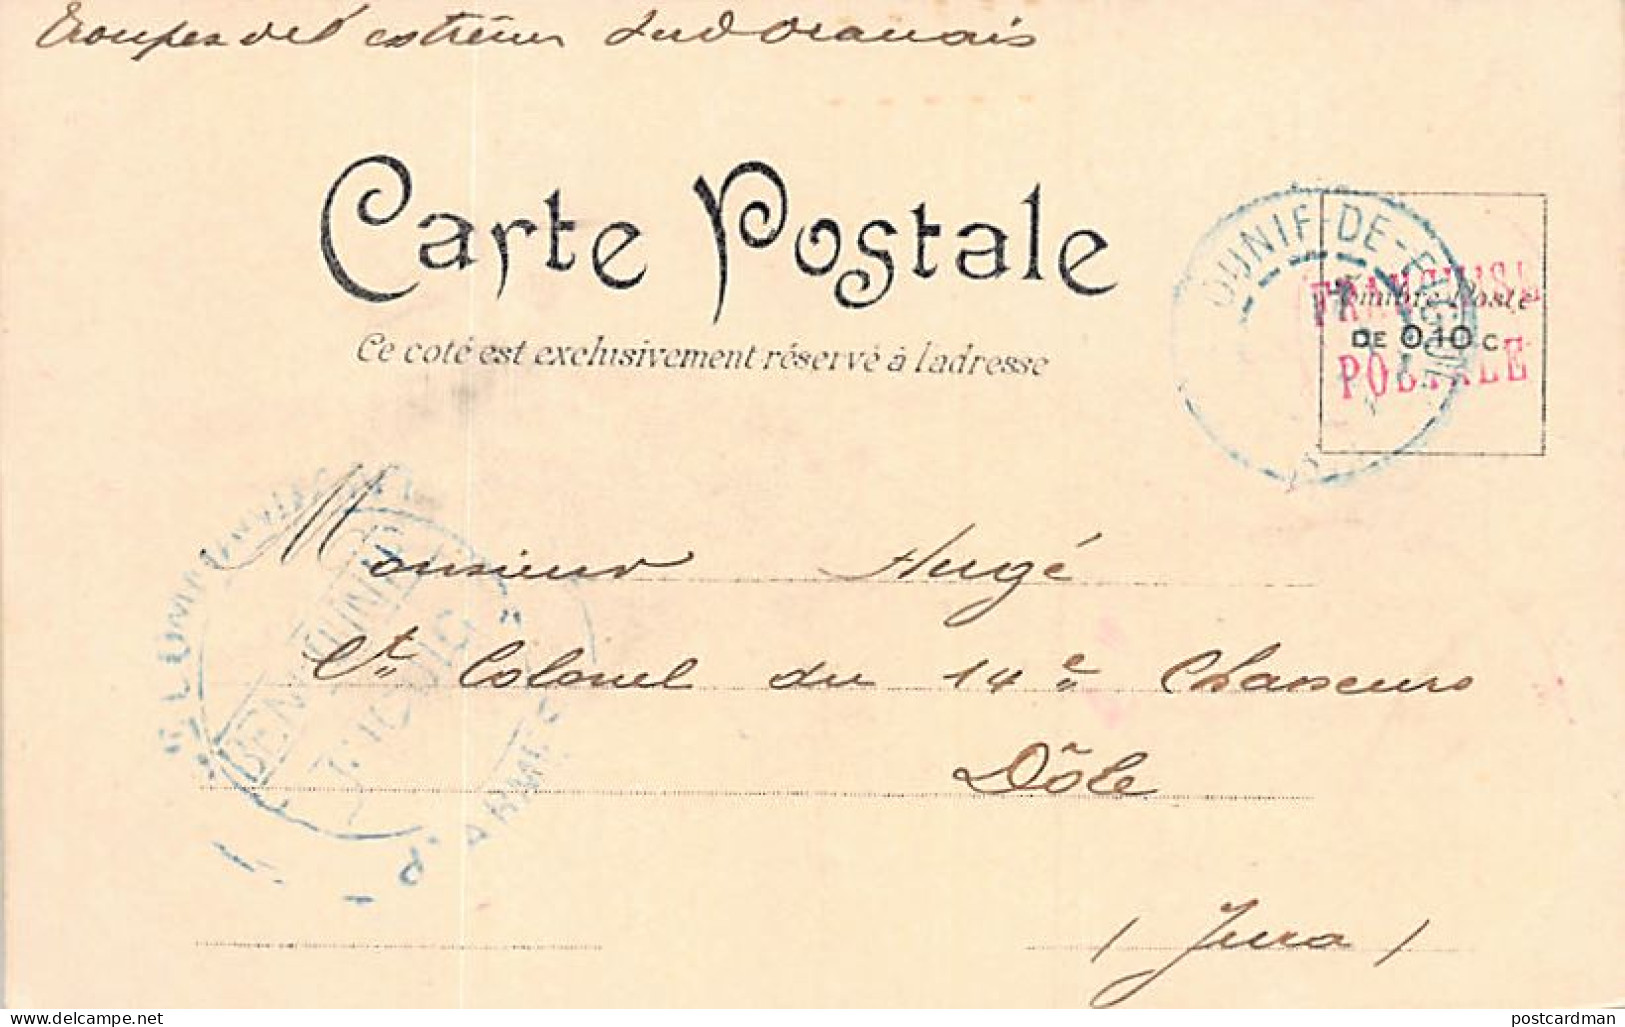 Troupes de l'extrême Sud Oranais
Carte Postale
Ce coté est exclusivement réservé à l'adresse
DJENIF-DE-
Timbre Poste
DE 0,10 C.
FRANCHISE
POSTALE
Monsieur Hugé
Lt Colonel du 14e Chasseurs
Dôle
(Jura)
BENI OUNIF
ARMES
delcampe.net
postcardman